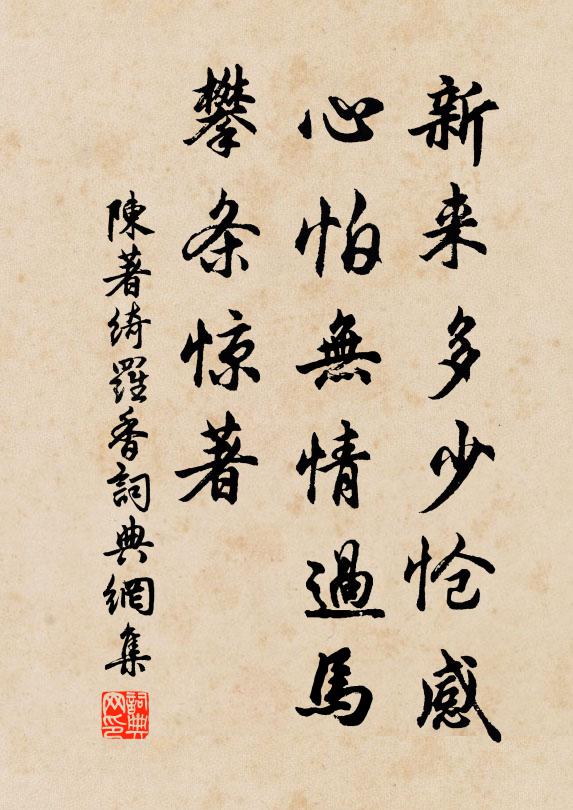 新来多少怆感
心怕無情過馬
攀条惊著
陳著綺羅香詞典網集
詞典网印